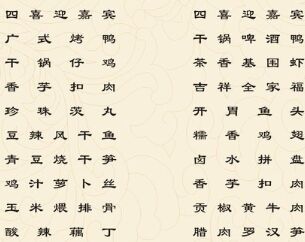 四喜迎嘉宾
广式烤鸭
干锅仔鸡
香芋扣肉
珍珠茨丸
豆辣风干鱼
青豆烧干笋
鸡汁萝卜丝
玉米煨排骨
酸辣藕丁
四喜迎嘉宾
干锅啤酒鸭
茶香基围虾
吉祥全家福
开胃鱼头
糯香鸡翅
卤水拼盘
香芋扣肉
贡椒黄牛肉
腊肉罗汉笋